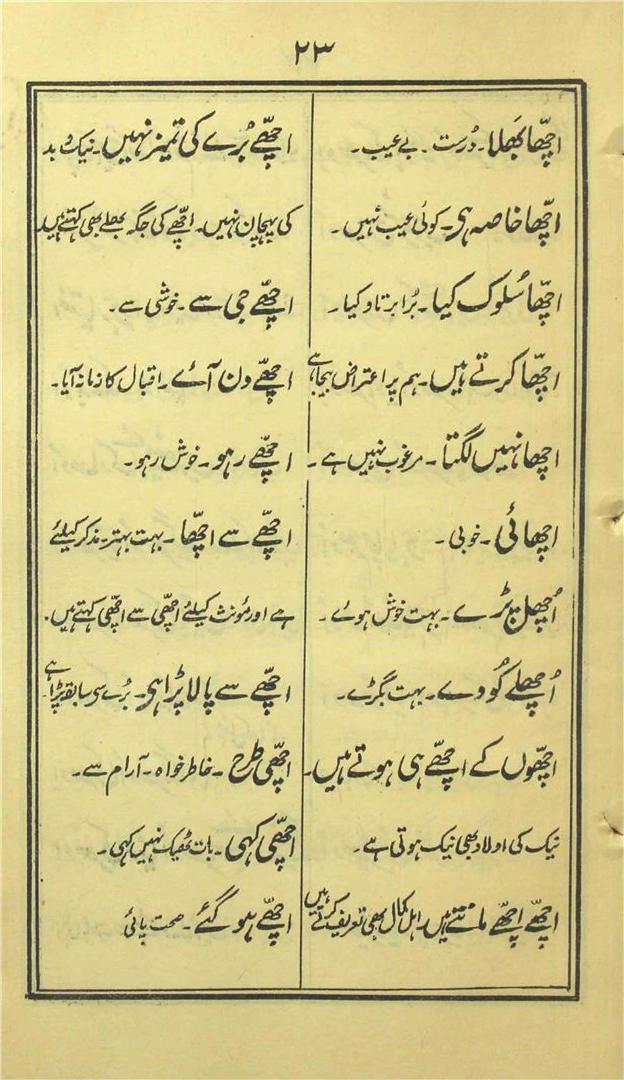 ۲۳
اچھّا بھَلا۔ دُرست۔ بے عیب۔
اچھّا خاصہ ہی۔ کوئی عیب نہیں۔
اچھّا سُلوک کیا۔ بُرا برتاو کیا۔
اچھّا کرتے ہیں۔ ہم پر اعتراض بیجا ہے
اچھا نہیں لگتا۔ مرغوب نہیں ہے۔
اچھائی۔ خوبی۔
اُچھل پڑے۔ بہت خوش ہوئے۔
اُچھلے کُودے۔ بہت بگڑے۔
اچھّوں کے اچھّے ہی ہوتے ہیں۔
نیک کی اولاد بھی نیک ہوتی ہے۔
اچھّے اچھّے مانتے ہیں۔ اہل کمال بھی تعریف کرتے ہیں
اچھّے بُرے کی تمیز نہیں۔ نیک و بد
کی پہچان نہیں۔ اچھّے کی جگہ بھلے بھی کہتے ہیں
اچھّے جی سے۔ خوشی سے۔
اچھّے دن آئے۔ اقبال کا زمانہ آیا۔
اچھّے رہو۔ خوش رہو۔
اچھّے سے اچھّا۔ بہت بہتر۔ مذکر کیلئے
ہے اور مؤنث کیلئے اچھّی سے اچھّی کہتے ہیں۔
اچھّے سے پالا پڑا ہی۔ بُرے سی سابقہ پڑا ہے
اچھّی طرح۔ خاطر خواہ۔ آرام سے۔
اچھّی کہی۔ بات ٹھیک نہیں کہی۔
اچھّے ہو گئے۔ صحت پائی